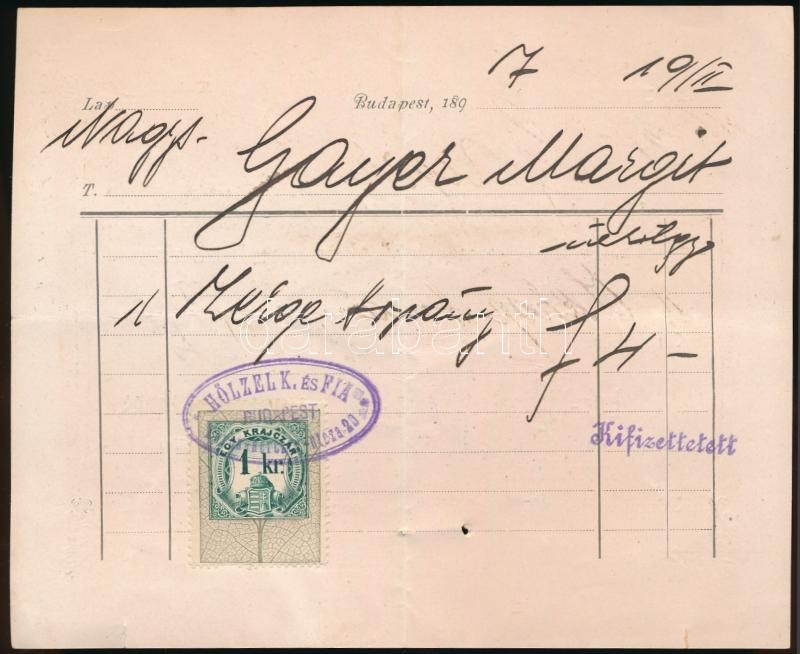 7 19/II
Lap
Budapest, 189
Nagys.
T. Gayer Margit
1 Zerge f 4 –
HÖLZEL K. ÉS FIA
BUDAPEST
utcza 20
EGY KRAJCZÁR
1 kr.
Kifizettetett
darabanth